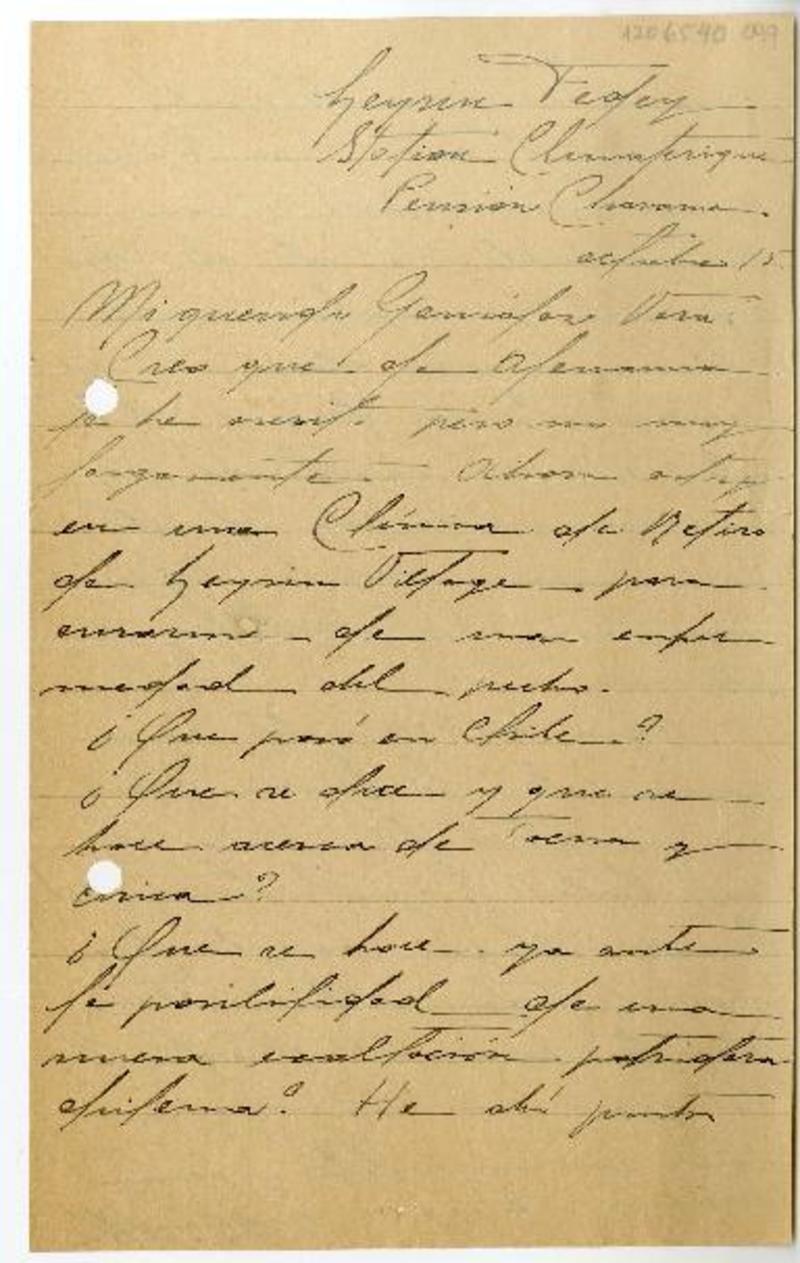 1206540 099
Leysin Fedey
Station Climaterique
Pension Chavanne.
octubre 15.
Mi querido González Vera:
Creo que de Alemania
le he escrito pero no muy
largamente. Ahora estoy
en una Clínica de Retiro
de Leysin Village para
curarme de una enfer
medad del pecho.
¿Que pasó en Chile?
¿Que se dice y que se
hace acerca de Tacna y
Arica?
¿Que se hace ya ante
la posibilidad de una
nueva exaltación patriotera
? He ahí puntos